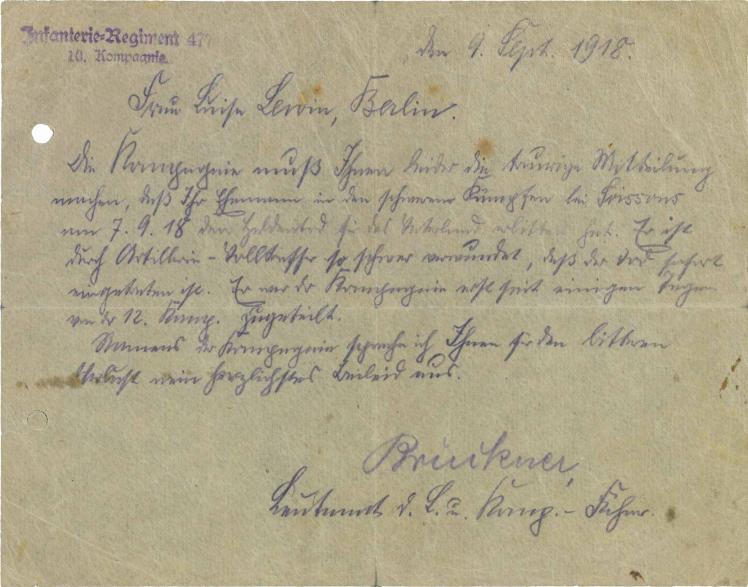 Infanterie-Regiment 477
10. Kompagnie.
den 9. Sept. 1918.
Frau Luise Lewin, Berlin.
Die Kompagnie muß Ihnen leider die traurige Mitteilung
machen, daß Ihr Ehemann in den schweren Kämpfen bei Soissons
am 7. 9. 18 den Heldentod für das Vaterland erlitten hat. Er ist
durch Artillerie-Volltreffer so schwer verwundet, daß der Tod sofort
eingetreten ist. Er war der Kompagnie erst seit einigen Tagen
von der 12. Komp. zugeteilt.
Namens der Kompagnie spreche ich Ihnen für den bitteren
Verlust mein herzlichstes Beileid aus.
Brückner,
Leutnant d. L. u. Komp.-Führer.